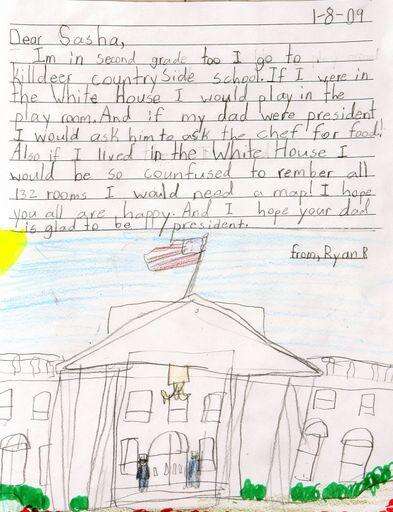 1-8-09
Dear Sasha,
Im in second grade too I go to
Killdeer countrySide school. If I were in
the White House I would play in the
play room. And if my dad were president
I would ask him to ask the chef for food!
Also if I lived in the White House I
would be so counfused to rember all
132 rooms I would need a map! I hope
you all are happy. And I hope your dad
is glad to be president.
from, Ryan R